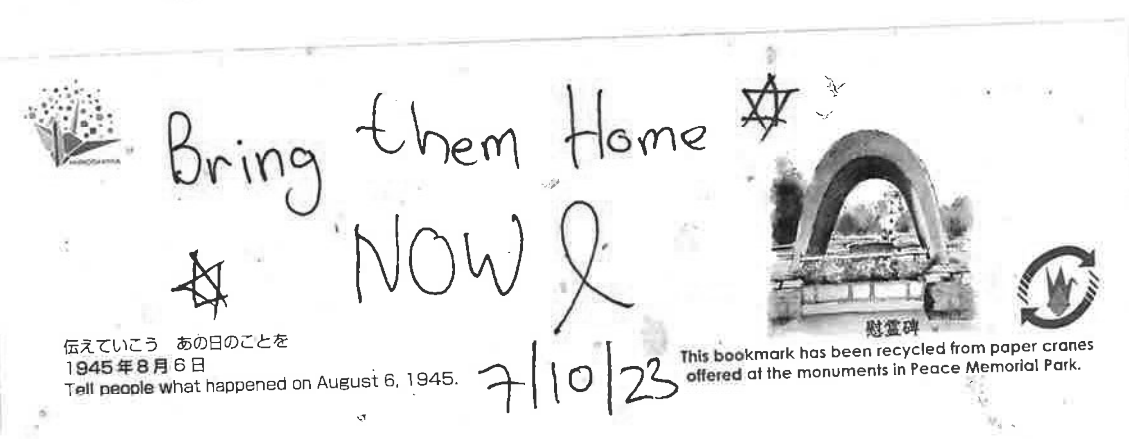 HIROSHIMA
Bring them Home
NOW
慰霊碑
伝えていこう あの日のことを
1945年8月6日
Tell people what happened on August 6, 1945.
7/10/23
This bookmark has been recycled from paper cranes
offered at the monuments in Peace Memorial Park.